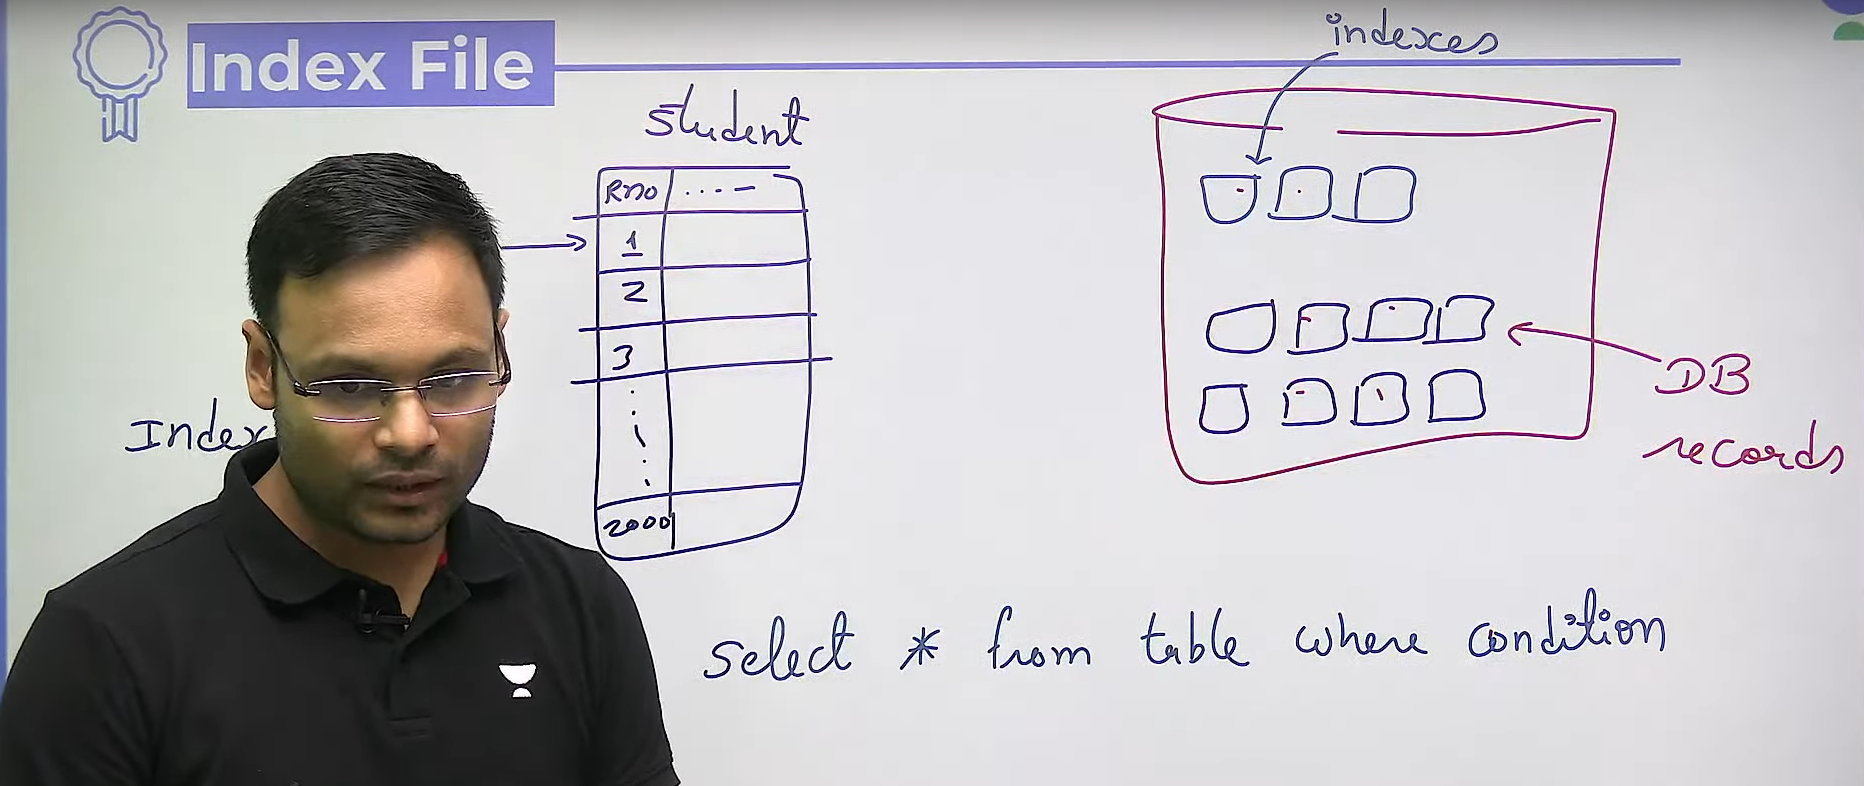 Index File
indexes
student
Rno ....-
1
2
3
2000
Index
DB
records
select * from table where condition